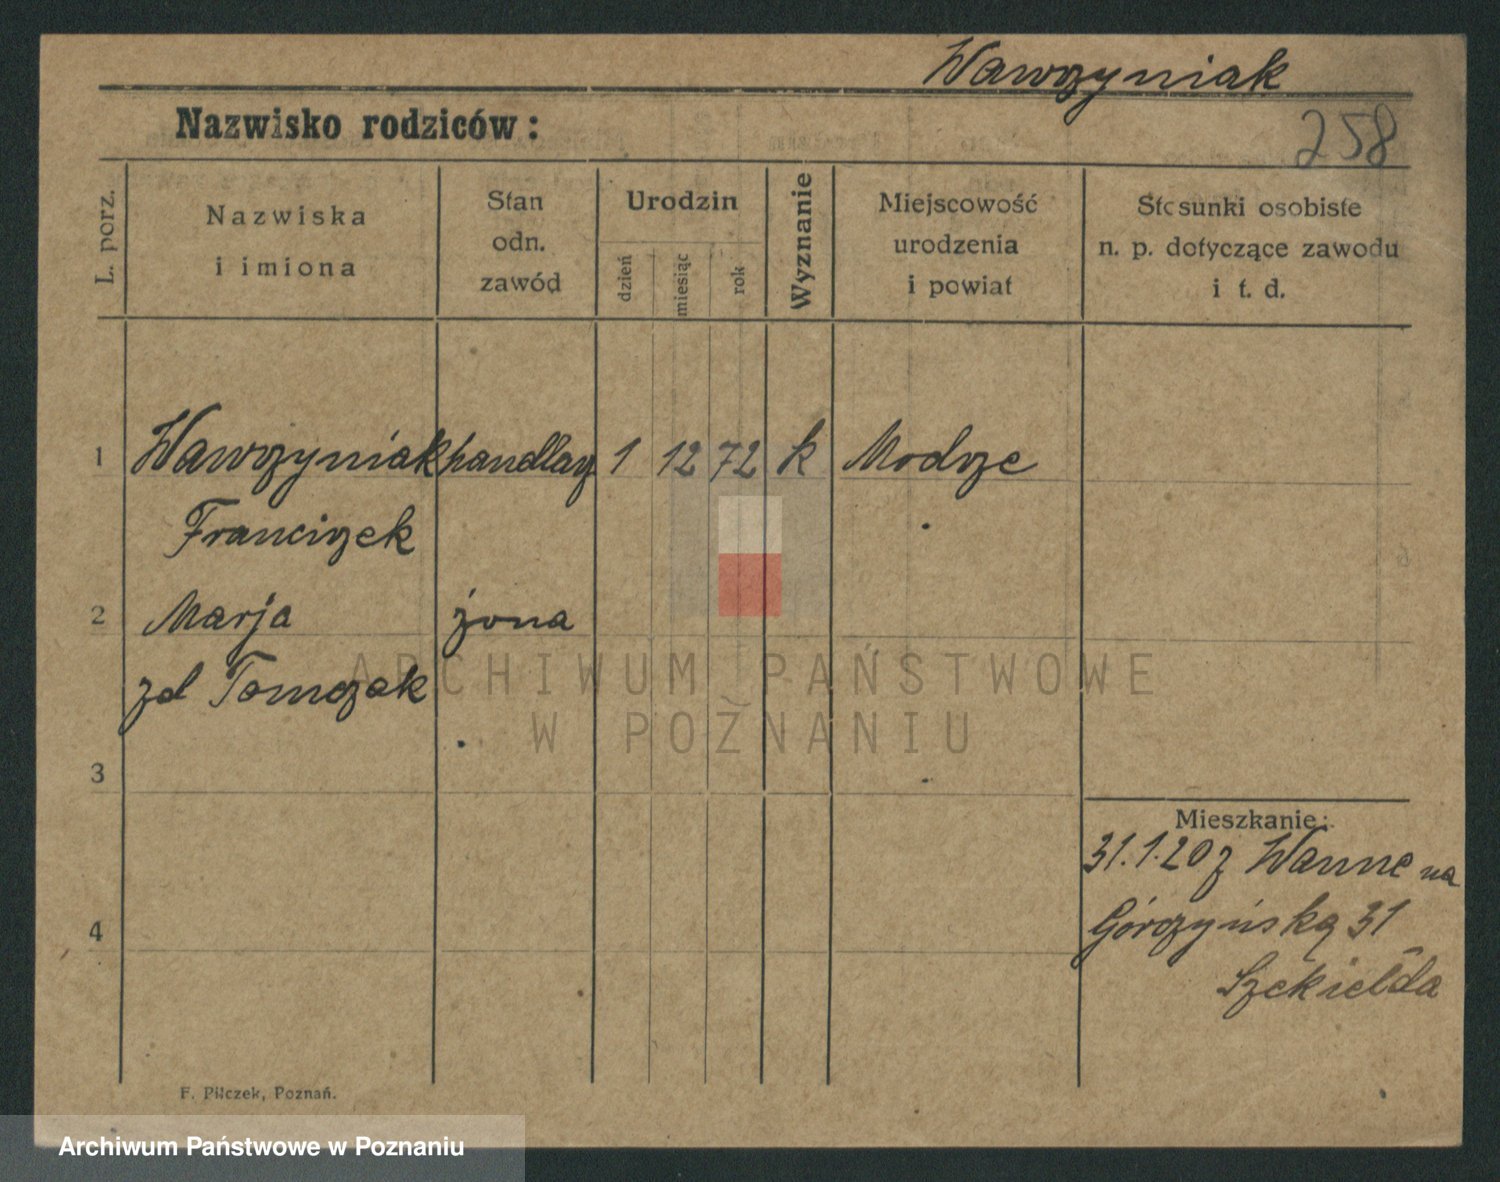 Wawrzyniak
258
Nazwisko rodziców:
L. porz.
Nazwiska
i imiona
Stan
odn.
zawód
Urodzin
dzień
miesiąc
rok
Wyznanie
Miejscowość
urodzenia
i powiat
Stosunki osobiste
n. p. dotyczące zawodu
i t. d.
1 Wawrzyniak handlarz 1 12 72 k Modrze
Franciszek
2 Marja żona
zd Tomczak
3
Mieszkanie:
31.1.20 z Wanne na
4 Górczyńską 31
Szekiełda
F. Pilczek, Poznań.
ARCHIWUM PAŃSTWOWE
W POZNANIU
Archiwum Państwowe w Poznaniu